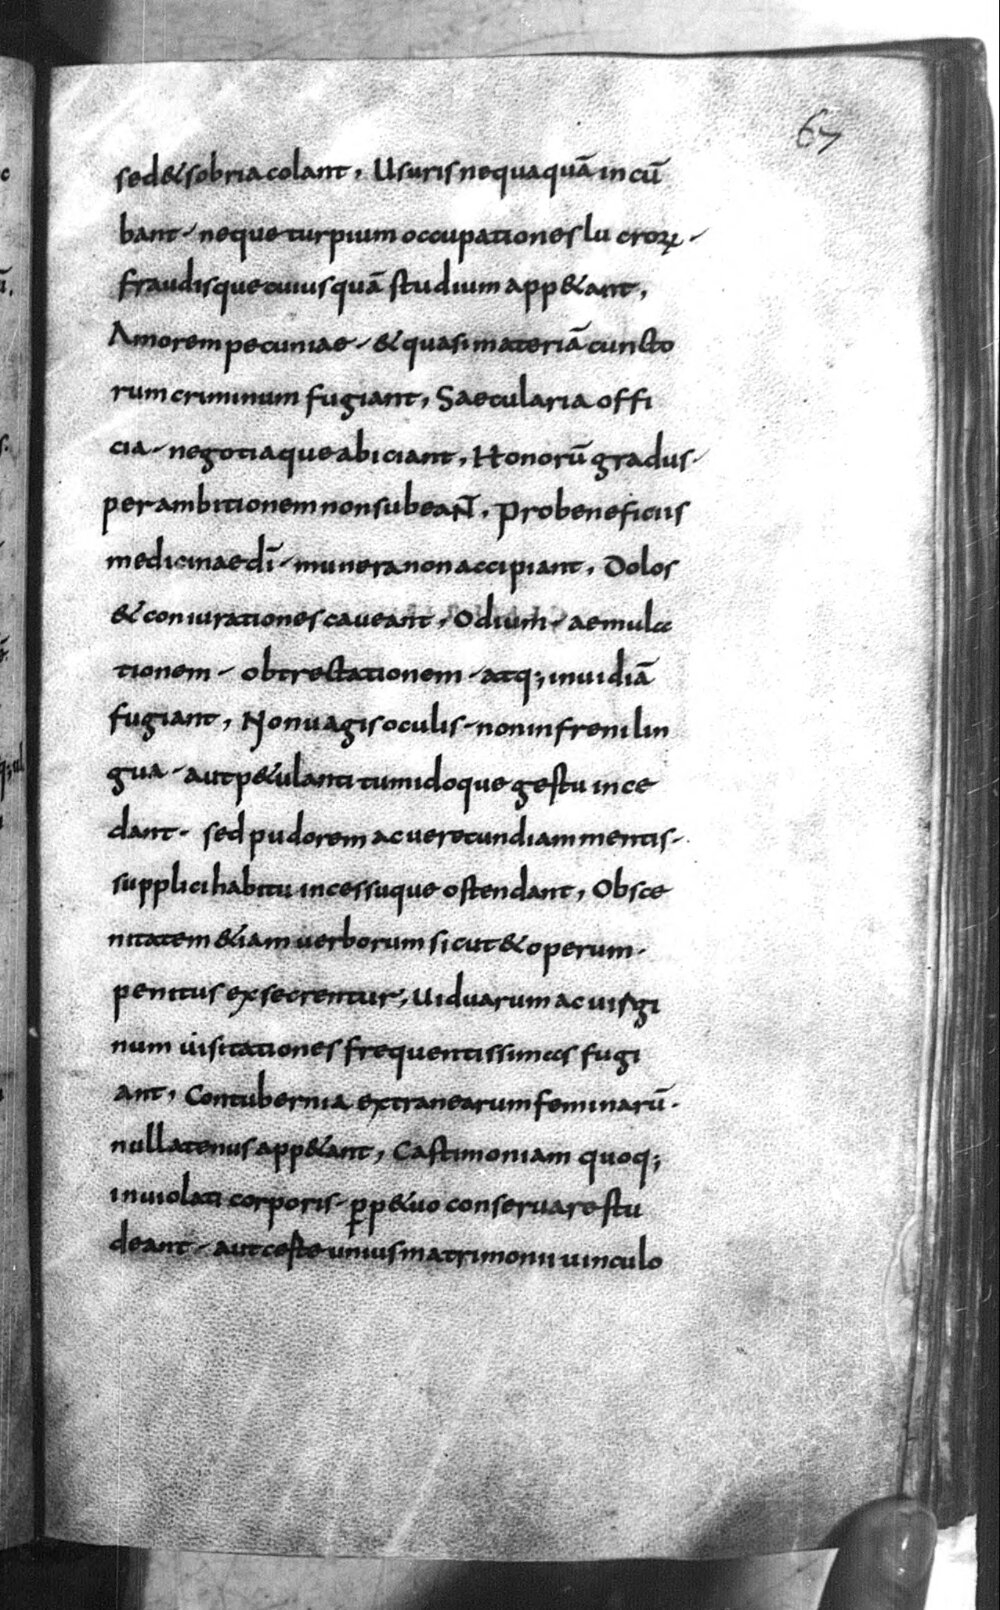 67
sed & sobria colant, Usuris nequaquā incū
bant neque turpium occupationes lucroꝝ
fraudisque cuiusquā studium app&ant,
Amorem pecuniae & quasi materiā cuncto
rum criminum fugiant, Saecularia offi
cia negotiaque abiciant, Honorū gradus
per ambitionem non subeaN̄, Pro beneficiis
medicinae dī munera non accipiant, Dolos
& coniurationes caveant, Odium aemula
tionem obtrectationem atq; invidiā
fugiant, Non vagis oculis non infreni lin
gua aut p&ulanti tumidoque gestu ince
dant sed pudorem ac verecundiam mentis
supplici habitu incessuque ostendant, Obsce
nitatem &iam verborum sicut & operum
penitus exsecrentur, Viduarum ac virgi
num visitationes frequentissimas fugi
ant, Contubernia extranearum feminarū
nullatenus app&ant, Castimoniam quoq;
inviolati corporis ꝑp&uo conservare stu
deant aut ceste unius matrimonii vinculo